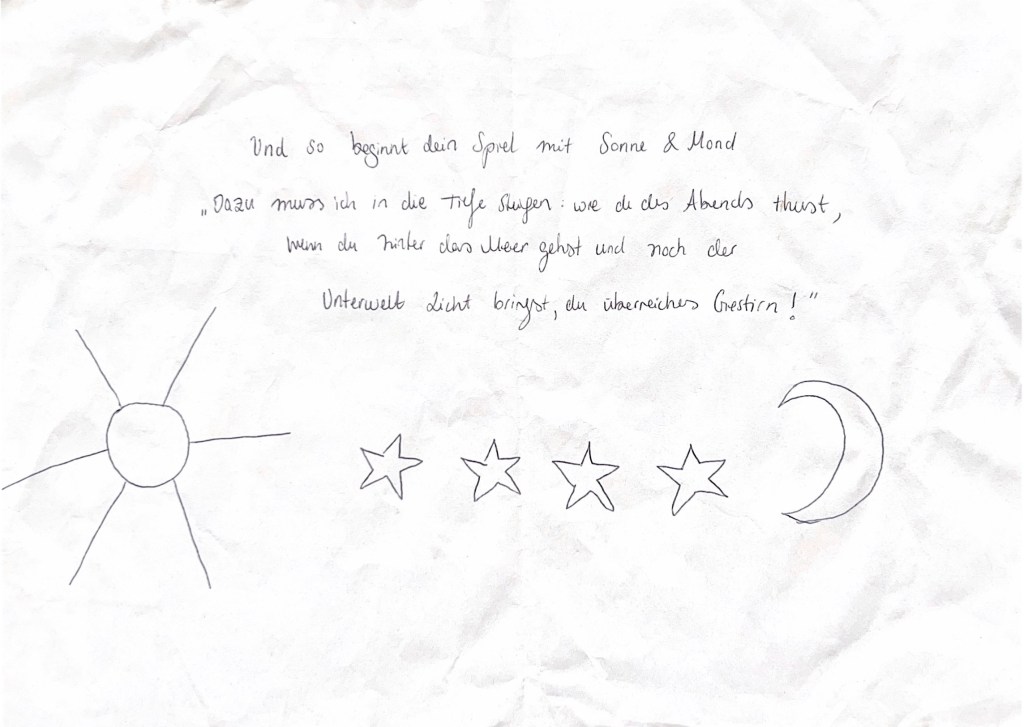 Und so beginnt dein Spiel mit Sonne & Mond
„Dazu muss ich in die Tiefe steigen: wie du des Abends thust,
wenn du hinter das Meer gehst und noch der
Unterwelt Licht bringst, du überreiches Gestirn!"